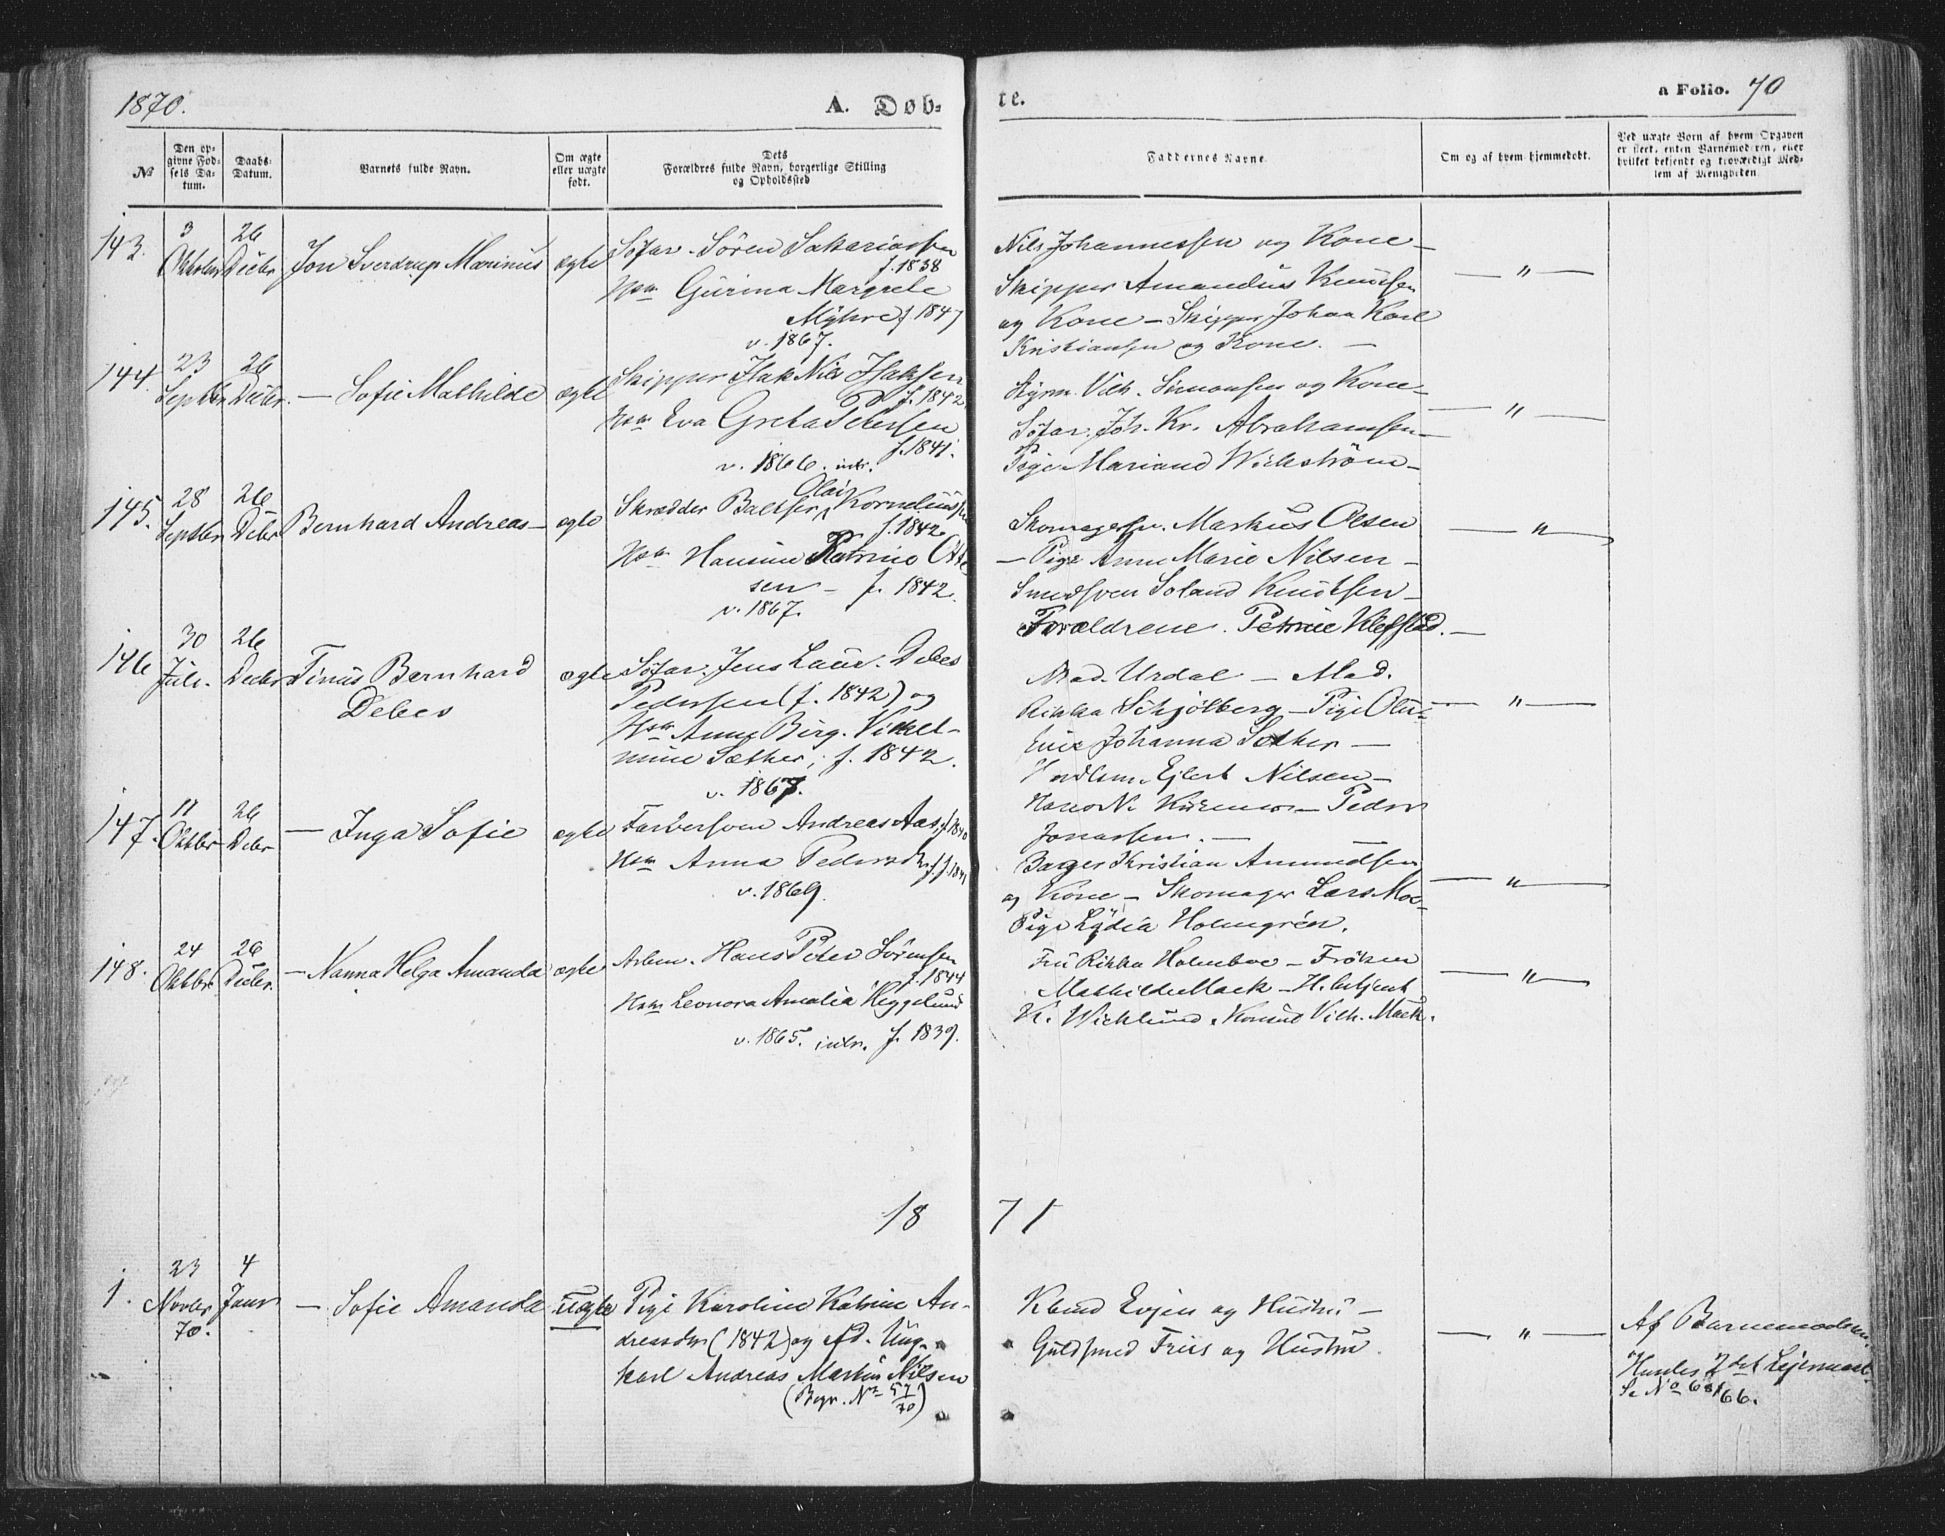 1870.
A. Døb-
te.
a Folio. 70
No
Den op-
givne Fød-
sels Da-
tum.
Daabs-
Datum.
Barnets fulde Navn.
Om ægte
eller uægte
født.
Dets
Forældres fulde Navn, borgerlige Stilling
og Opholdssted
Faddernes Navne
Om og af hvem hjemmedøbt.
Ved uægte Børn af hvem Opgaven
er skeet, enten Barnemoderen, eller
hvilket bekjendt og troværdigt Med-
lem af Menigheden.
143.
3
Oktober
26
Decbr
Jon Sverdrup Marinus
ægte
Søfar. Søren Sakariassen
f. 1838
Hstr Gurina Margrete
Myhre f. 1847
v. 1867.
Nils Johannessen og Kone –
Skipper Amandus Knudsen
og Kone – Skipper Johan Karl
Kristiansen og Kone. –
— " —
144.
23
Septbr
26
Decbr.
— Sofie Mathilde
ægte
Skipper Isak Nils Isaksen
f. 1842
Hstr Eva Greta Petersen
f. 1841.
v. 1866. intr.
Styrm. Vilh. Simonsen og Kone –
Søfar. Joh. Kr. Abrahamsen –
Pige Mariane Wickstrøm –
— " —
145.
28
Septbr
26
Decbr
Bernhard Andreas –
ægte
Skrædder Baltser Olai Kornelius
f. 1842
Hstr Hansine Katrine
sen – f. 1842.
v. 1867.
Skomagersv. Markus Olsen
– Pige Anne Marie Nilsen –
Smedsven Soland Knudsen –
Forældrene. Petrine Kleffstad. –
— " —
146
30
Juli.
26
Decbr
Tinus Bernhard
Debes
ægte
Søfar. Jens Laur. Debes
Pedersen (f. 1842) og
Hstr Anne Birg. Vikel-
mine Sæther, f. 1842.
v. 1867.
Mad. Urdal – Mad.
Rikka Schjølberg – Pige
Johanna Sæther –
Ejlert Nilsen –
Peder
Jonassen. –
— " —
147.
11
Oktbr
26
Decbr
— Inga Sofie
ægte
Farversven Andreas Aas, f. 1840
Hstr Anna Pedersdtr f. 1841
v. 1869.
Bager Kristian Amundsen
og Kone – Skomager Lars Moe –
Pige Lydia Holmgrén.
— " —
148.
24
Oktbr
26
Decbr.
— Nanna Helga Amanda
ægte
Arbm. Hans Peter Sørensen
f. 1844
Hstr Leonora Amalia Heggelund
v. 1865. intr. f. 1839.
Fru Rikka Holmboe – Frøken
Mathilde Mack – H.betjent
K. Wicklund. Konsul Vilh. Mack.
— " —
18 71
1.
23
Novbr
70.
4
Janr
— Sofie Amanda
uægte
Pige Karoline Katrine An-
dreasdtr (1842) og Ad. Ung-
karl Andreas Martin Nilsen
(Begr. No 57/70)
Kbmd Evjen og Hustru –
Guldsmed Friis og Hustru.
— " —
Af Barnemoderen
Hendes 2det Lejermaal.
Se No 66.